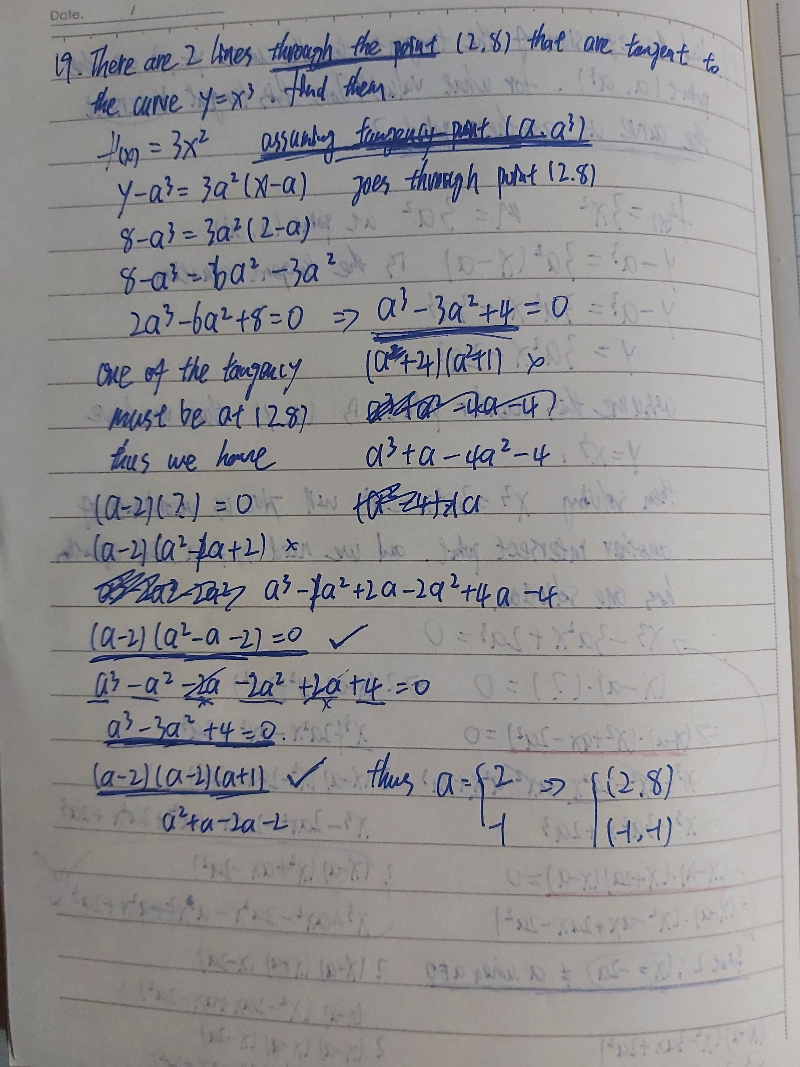 Date. /
19. There are 2 lines through the point (2,8) that are tangent to
the curve y=x³. find them.
f'(x) = 3x² assuming tangency point (a. a³)
y-a³ = 3a²(x-a) goes through point (2.8)
8-a³ = 3a²(2-a)
8-a³ = 6a² -3a²
2a³-6a²+8=0 => a³-3a²+4=0
one of the tangency (a²+4)(a²+1) ×
must be at (2.8)
thus we have a³+a-4a²-4
(a-2)(?) = 0
(a-2)(a²-1a+2) ×
a³-1a²+2a-2a²+4a-4
(a-2)(a²-a-2)=0 ✓
a³-a²-2a-2a²+2a+4=0
a³-3a²+4=0.
(a-2)(a-2)(a+1) ✓ thus a={2 => {(2,8)
a²+a-2a-2 -1 (-1,-1)